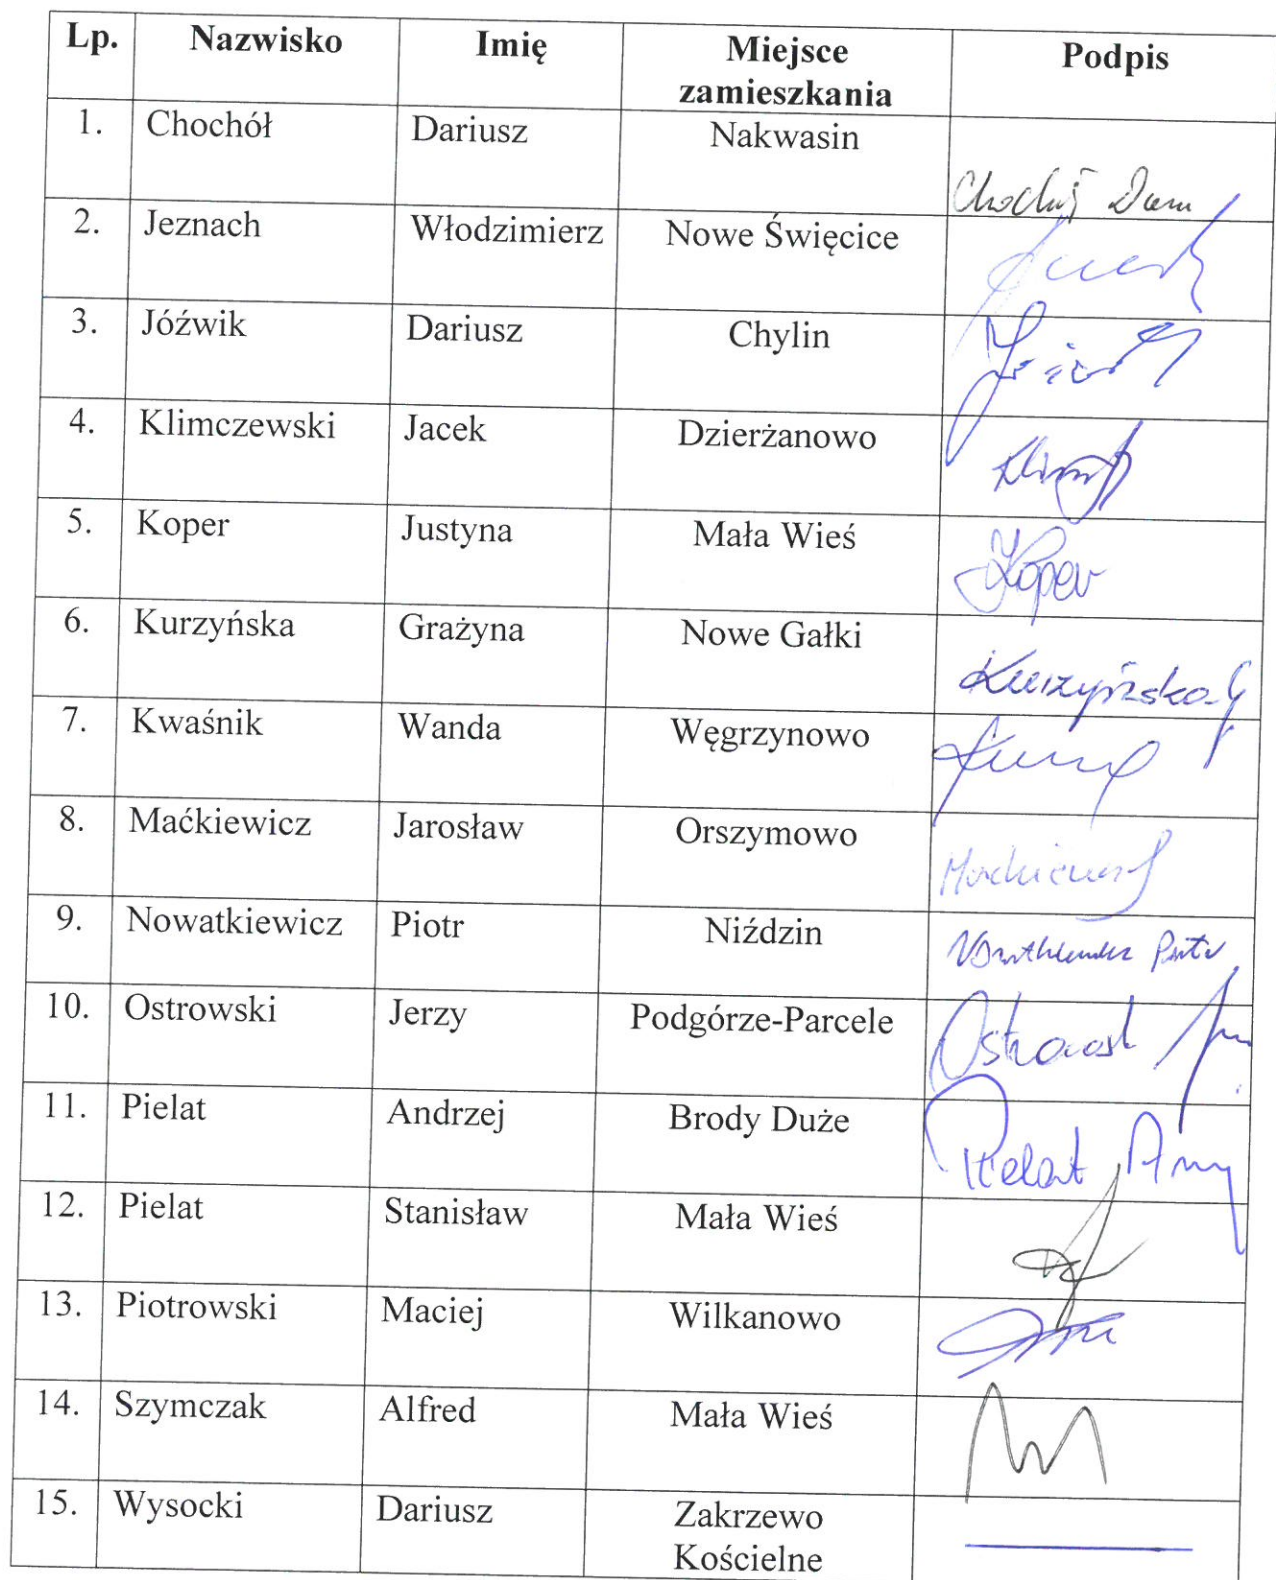 Lp. Nazwisko Imię Miejsce zamieszkania Podpis
1. Chochół Dariusz Nakwasin
2. Jeznach Włodzimierz Nowe Święcice
3. Jóźwik Dariusz Chylin
4. Klimczewski Jacek Dzierżanowo
5. Koper Justyna Mała Wieś Koper
6. Kurzyńska Grażyna Nowe Gałki Kurzyńska G
7. Kwaśnik Wanda Węgrzynowo
8. Maćkiewicz Jarosław Orszymowo
9. Nowatkiewicz Piotr Niździn
10. Ostrowski Jerzy Podgórze-Parcele
11. Pielat Andrzej Brody Duże Pielat
12. Pielat Stanisław Mała Wieś
13. Piotrowski Maciej Wilkanowo
14. Szymczak Alfred Mała Wieś
15. Wysocki Dariusz Zakrzewo
Kościelne